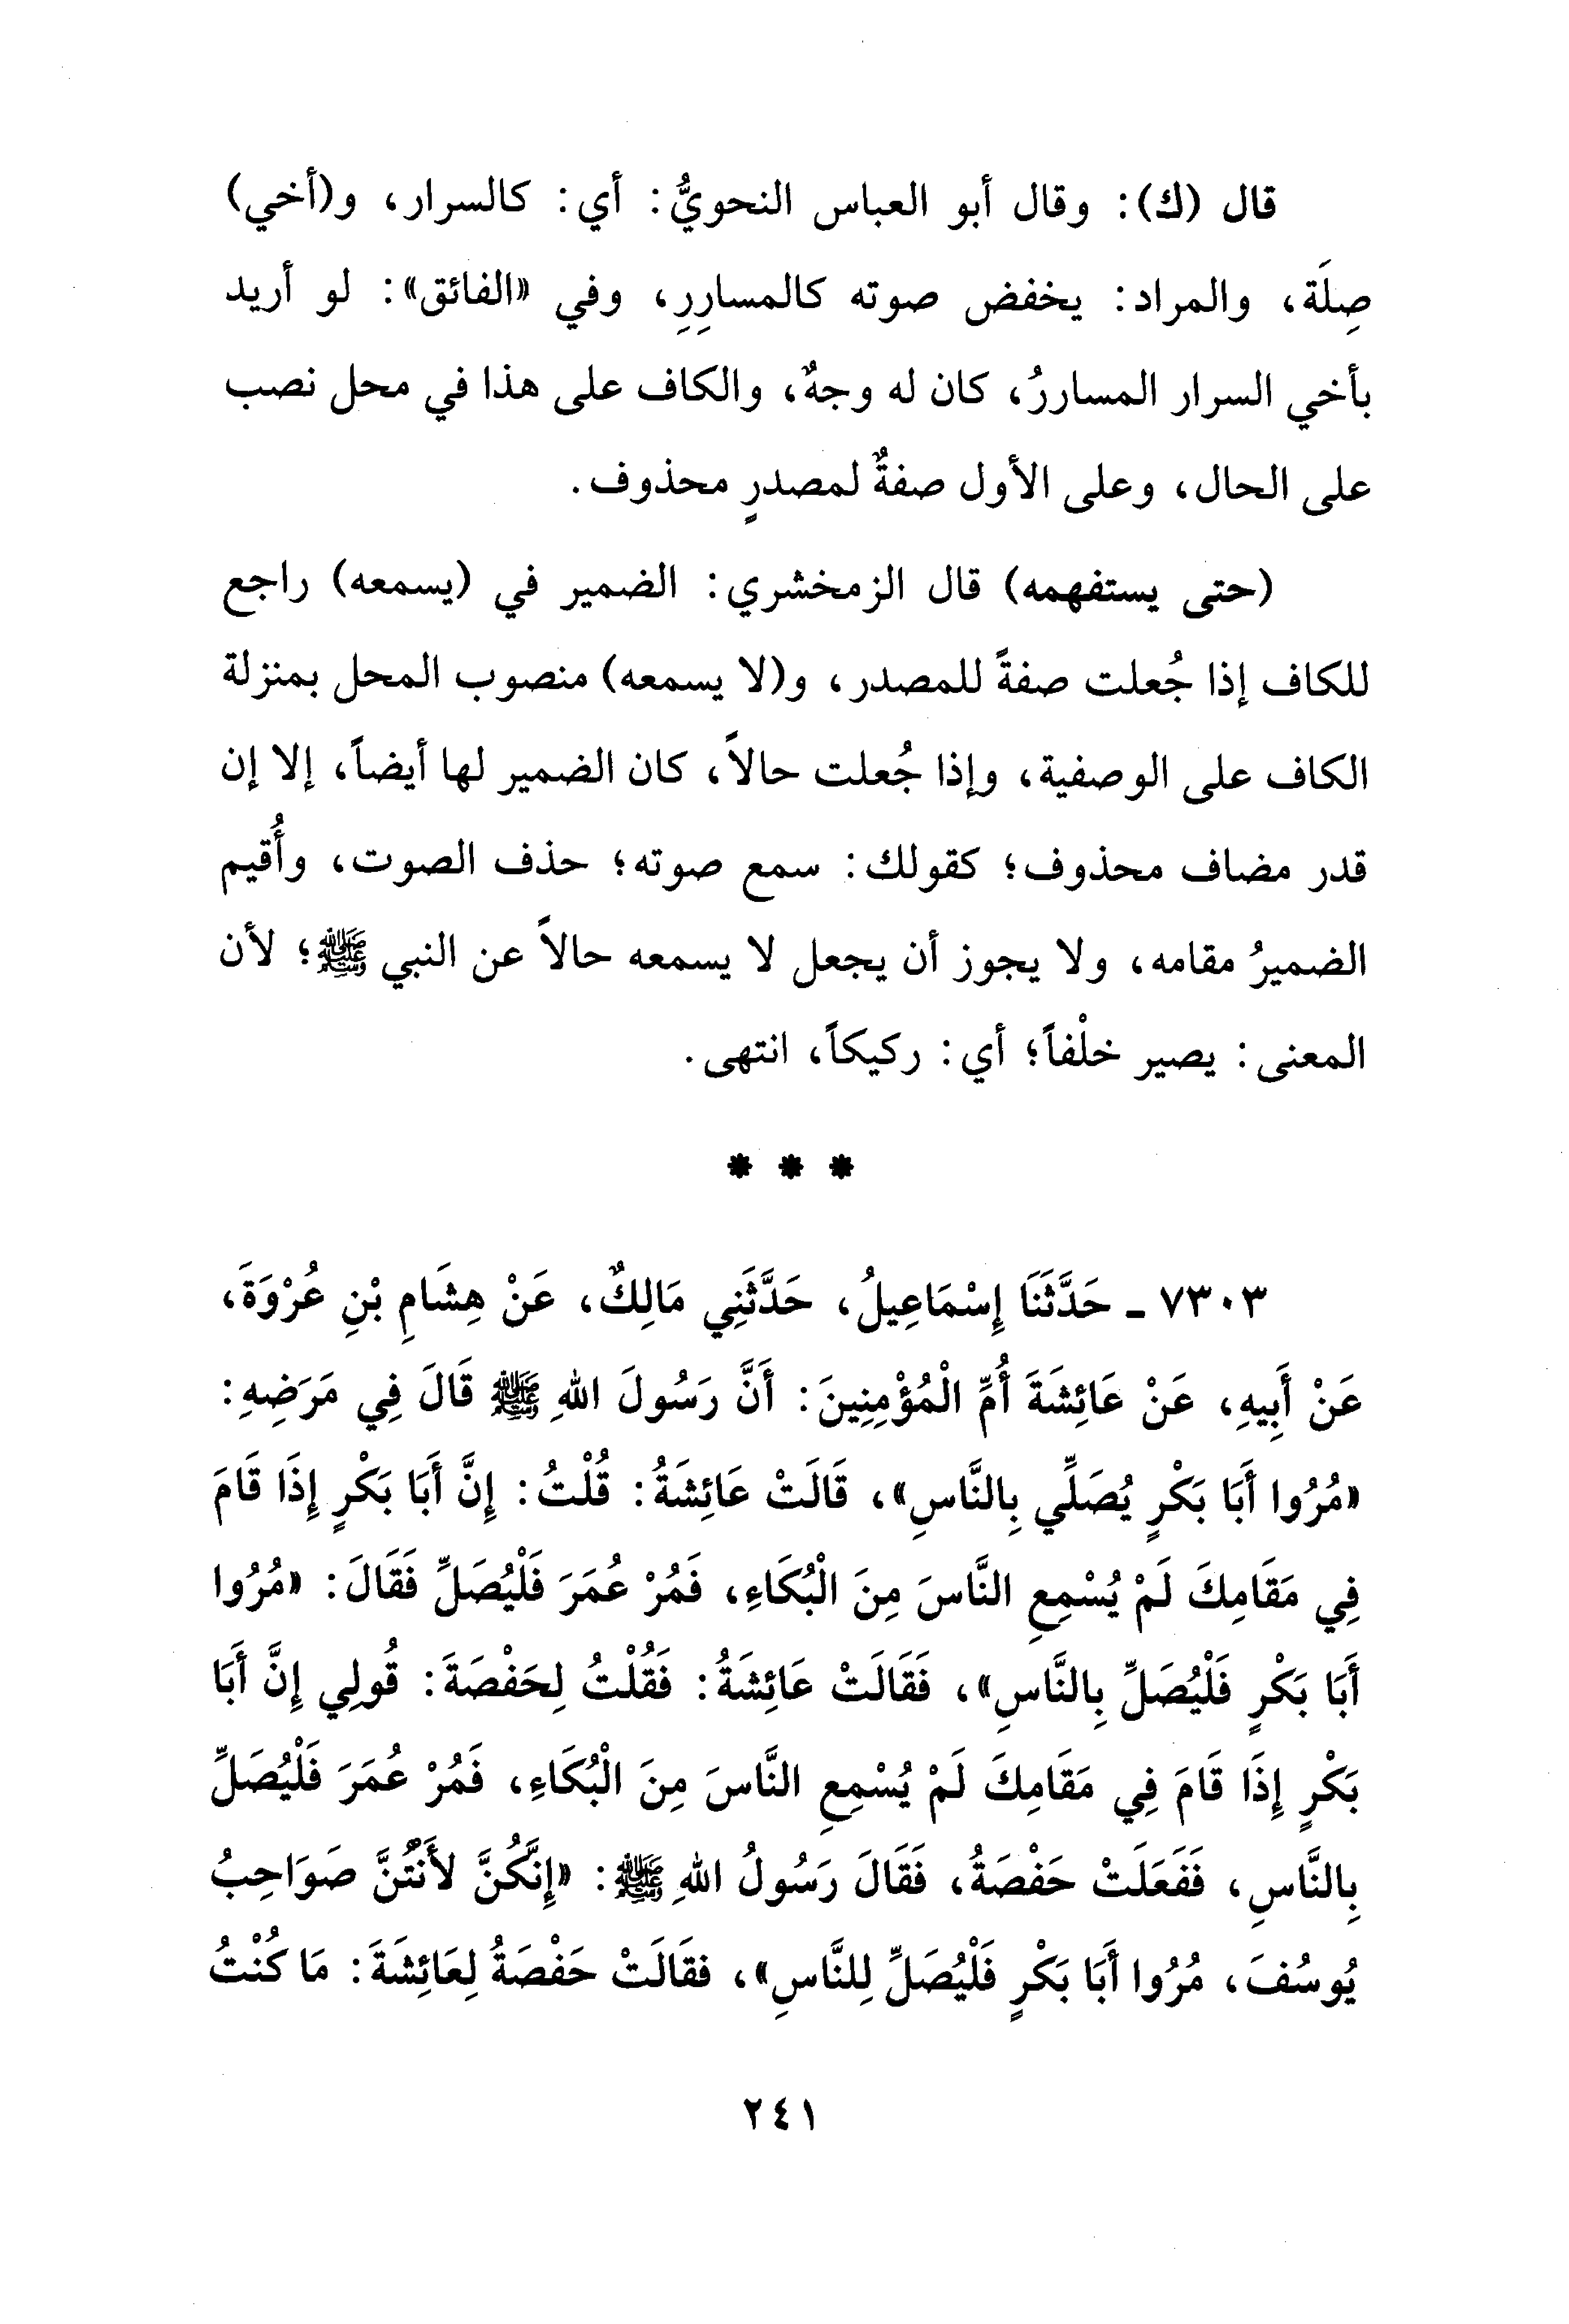 قال (ك): وقال أبو العباس النحويُّ: أي: كالسرار، و(أخي)
صِلَة، والمراد: يخفض صوته كالمسارِرِ، وفي «الفائق»: لو أريد
بأخي السرار المساررُ، كان له وجهٌ، والكاف على هذا في محل نصب
على الحال، وعلى الأول صفةٌ لمصدرٍ محذوف.
(حتى يستفهمه) قال الزمخشري: الضمير في (يسمعه) راجع
للكاف إذا جُعلت صفةً للمصدر، و(لا يسمعه) منصوب المحل بمنزلة
الكاف على الوصفية، وإذا جُعلت حالاً، كان الضمير لها أيضاً، إلا إن
قدر مضاف محذوف؛ كقولك: سمع صوته؛ حذف الصوت، وأُقيم
الضميرُ مقامه، ولا يجوز أن يجعل لا يسمعه حالاً عن النبي ﷺ؛ لأن
المعنى: يصير خلْفاً؛ أي: ركيكاً، انتهى.
* * *
٧٣٠٣ ـ حَدَّثَنَا إِسْمَاعِيلُ، حَدَّثَنِي مَالِكٌ، عَنْ هِشَامِ بْنِ عُرْوَةَ،
عَنْ أَبِيهِ، عَنْ عَائِشَةَ أُمِّ الْمُؤْمِنِينَ: أَنَّ رَسُولَ اللهِ ﷺ قَالَ فِي مَرَضِهِ:
«مُرُوا أَبَا بَكْرٍ يُصَلِّي بِالنَّاسِ»، قَالَتْ عَائِشَةُ: قُلْتُ: إِنَّ أَبَا بَكْرٍ إِذَا قَامَ
فِي مَقَامِكَ لَمْ يُسْمِعِ النَّاسَ مِنَ الْبُكَاءِ، فَمُرْ عُمَرَ فَلْيُصَلِّ فَقَالَ: «مُرُوا
أَبَا بَكْرٍ فَلْيُصَلِّ بِالنَّاسِ»، فَقَالَتْ عَائِشَةُ: فَقُلْتُ لِحَفْصَةَ: قُولِي إِنَّ أَبَا
بَكْرٍ إِذَا قَامَ فِي مَقَامِكَ لَمْ يُسْمِعِ النَّاسَ مِنَ الْبُكَاءِ، فَمُرْ عُمَرَ فَلْيُصَلِّ
بِالنَّاسِ، فَفَعَلَتْ حَفْصَةُ، فَقَالَ رَسُولُ اللهِ ﷺ: «إِنَّكُنَّ لأَنْتُنَّ صَوَاحِبُ
يُوسُفَ، مُرُوا أَبَا بَكْرٍ فَلْيُصَلِّ لِلنَّاسِ»، فقَالَتْ حَفْصَةُ لِعَائِشَةَ: مَا كُنْتُ
٢٤١